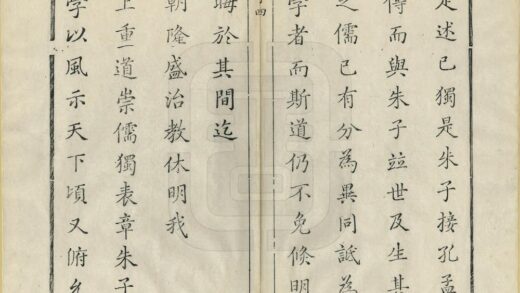 足述已獨是朱子接孔孟
傳而與朱子竝世及生其
之儒已有分為異同詆為
學者而斯道仍不免倏明
晦於其間迄
朝隆盛治教休明我
上重道崇儒獨表章朱子
學以風示天下頃又俯允
四